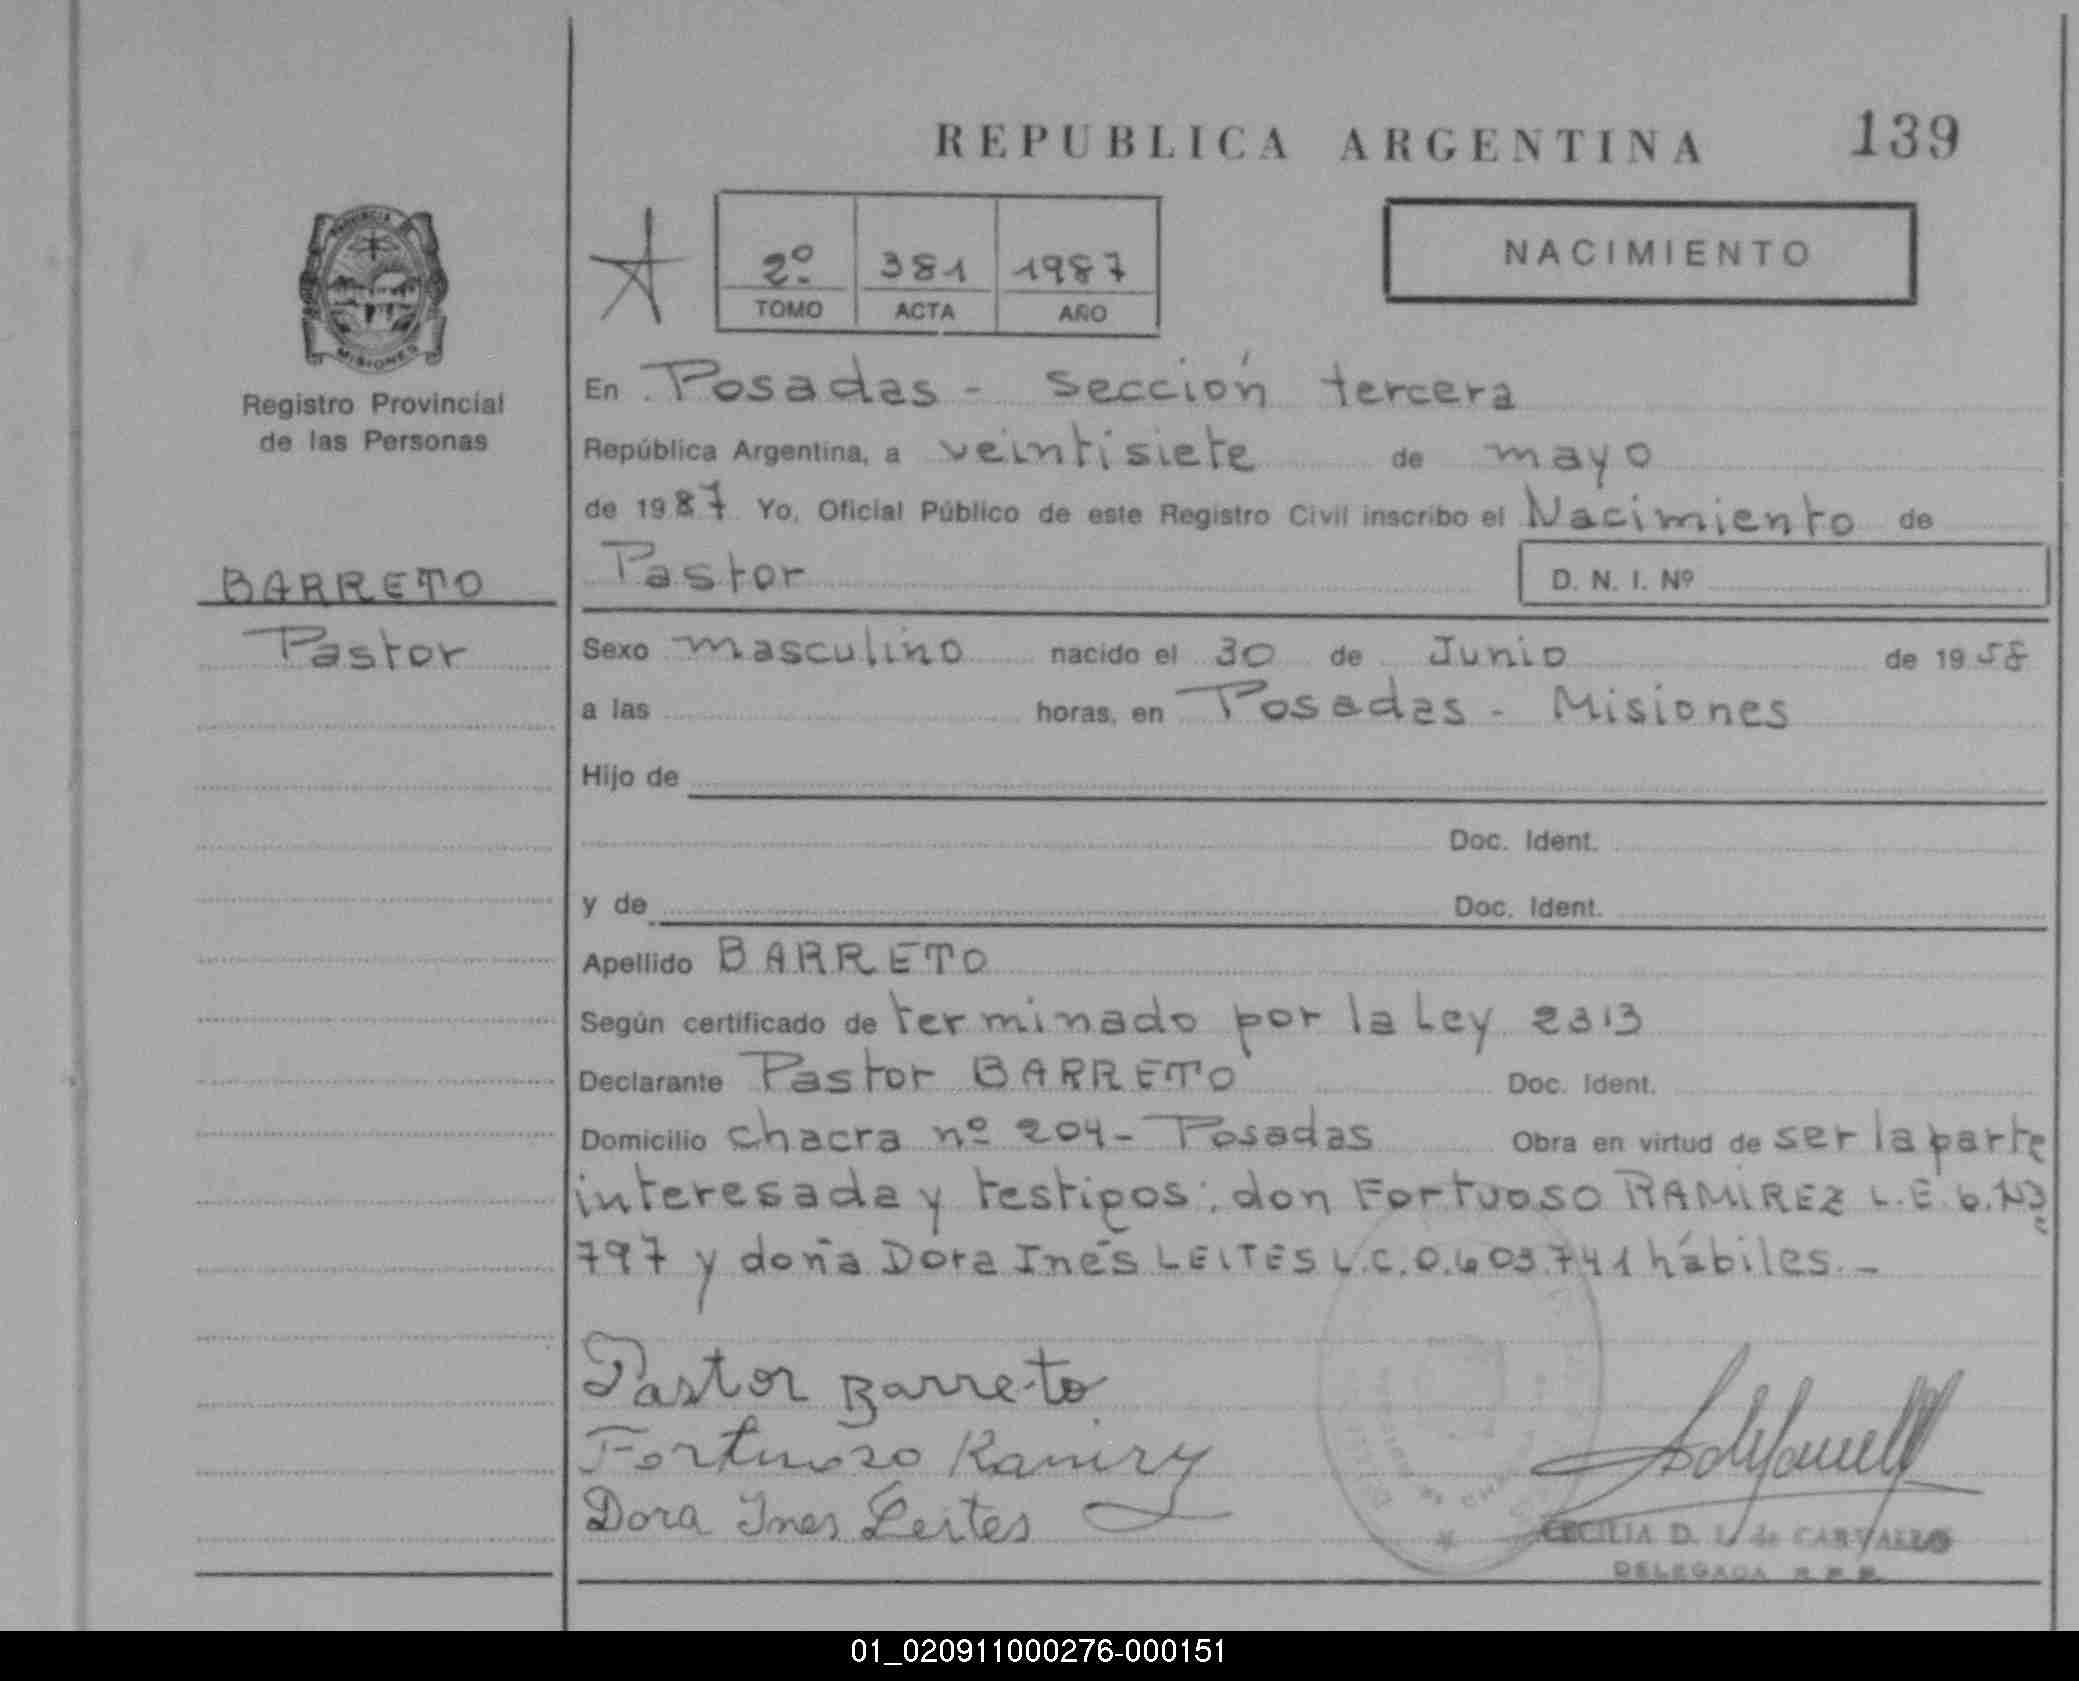 REPUBLICA ARGENTINA 139
PROVINCIA
MISIONES
Registro Provincial
de las Personas
2º 381 1987
TOMO ACTA AÑO
NACIMIENTO
En Posadas - Sección tercera
República Argentina, a veintisiete de mayo
de 1987 Yo, Oficial Público de este Registro Civil inscribo el Nacimiento de
BARRETO
Pastor
Pastor D. N. I. Nº
Sexo masculino nacido el 30 de Junio de 1958
a las horas, en Posadas - Misiones
Hijo de
Doc. Ident.
y de Doc. Ident.
Apellido BARRETO
Según certificado de terminado por la Ley 2313
Declarante Pastor BARRETO Doc. Ident.
Domicilio chacra nº 204 - Posadas Obra en virtud de ser la parte
interesada y testigos: don Fortuoso RAMIREZ L.E. 6.
797 y doña Dora Inés LEITES L.C. 0.603.741 hábiles. -
Pastor Barreto
Fortuoso Ramirez
Dora Ines Leites
CECILIA D. L. de CARVALLO
DELEGADA R.P.P.
01_020911000276-000151